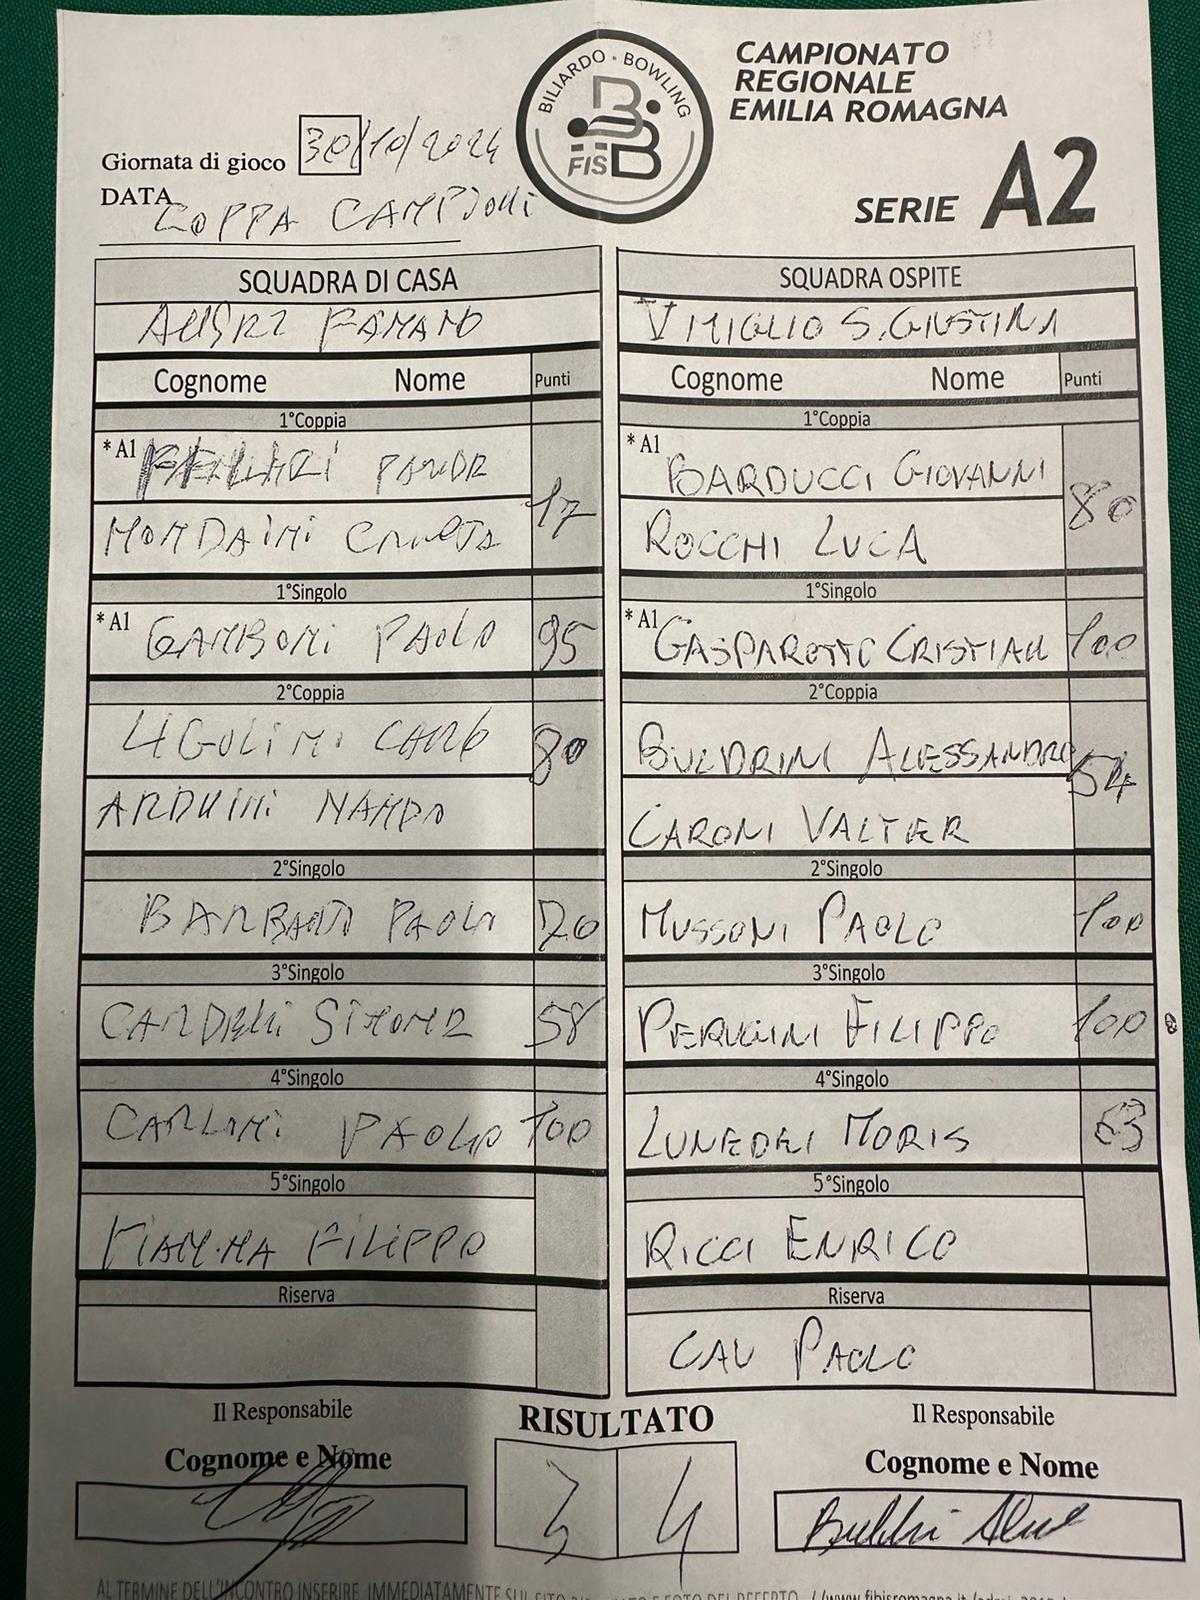 BILIARDO · BOWLING
FISBB
CAMPIONATO
REGIONALE
EMILIA ROMAGNA
SERIE A2
Giornata di gioco 30/10/2024
DATA
COPPA CAMPIONI
SQUADRA DI CASA
SQUADRA OSPITE
V MIGLIO S.GIUSTINA
Cognome Nome Punti
Cognome Nome Punti
1°Coppia
1°Coppia
*A1
17
*A1 BARDUCCI GIOVANNI
80
MONDAINI
ROCCHI LUCA
1°Singolo
1°Singolo
*A1 GAMBONI PAOLO 95
*A1 GASPAROTTO CRISTIAN 100
2°Coppia
2°Coppia
UGOLINI CARLO
80
BULDRINI ALESSANDRO
54
ARDUINI NANDO
CARONI VALTER
2°Singolo
2°Singolo
PAOLO 70
MUSSONI PAOLO 100
3°Singolo
3°Singolo
CARDELLI SIMONE 58
PERUGINI FILIPPO 100
4°Singolo
4°Singolo
CARLINI PAOLO 100
LUNEDEI MORIS 63
5°Singolo
5°Singolo
FIAMMA FILIPPO
RICCI ENRICO
Riserva
Riserva
CAU PAOLO
Il Responsabile
RISULTATO
Il Responsabile
Cognome e Nome
Cognome e Nome
3 4
AL TERMINE DELL'INCONTRO INSERIRE IMMEDIATAMENTE SUL SITO